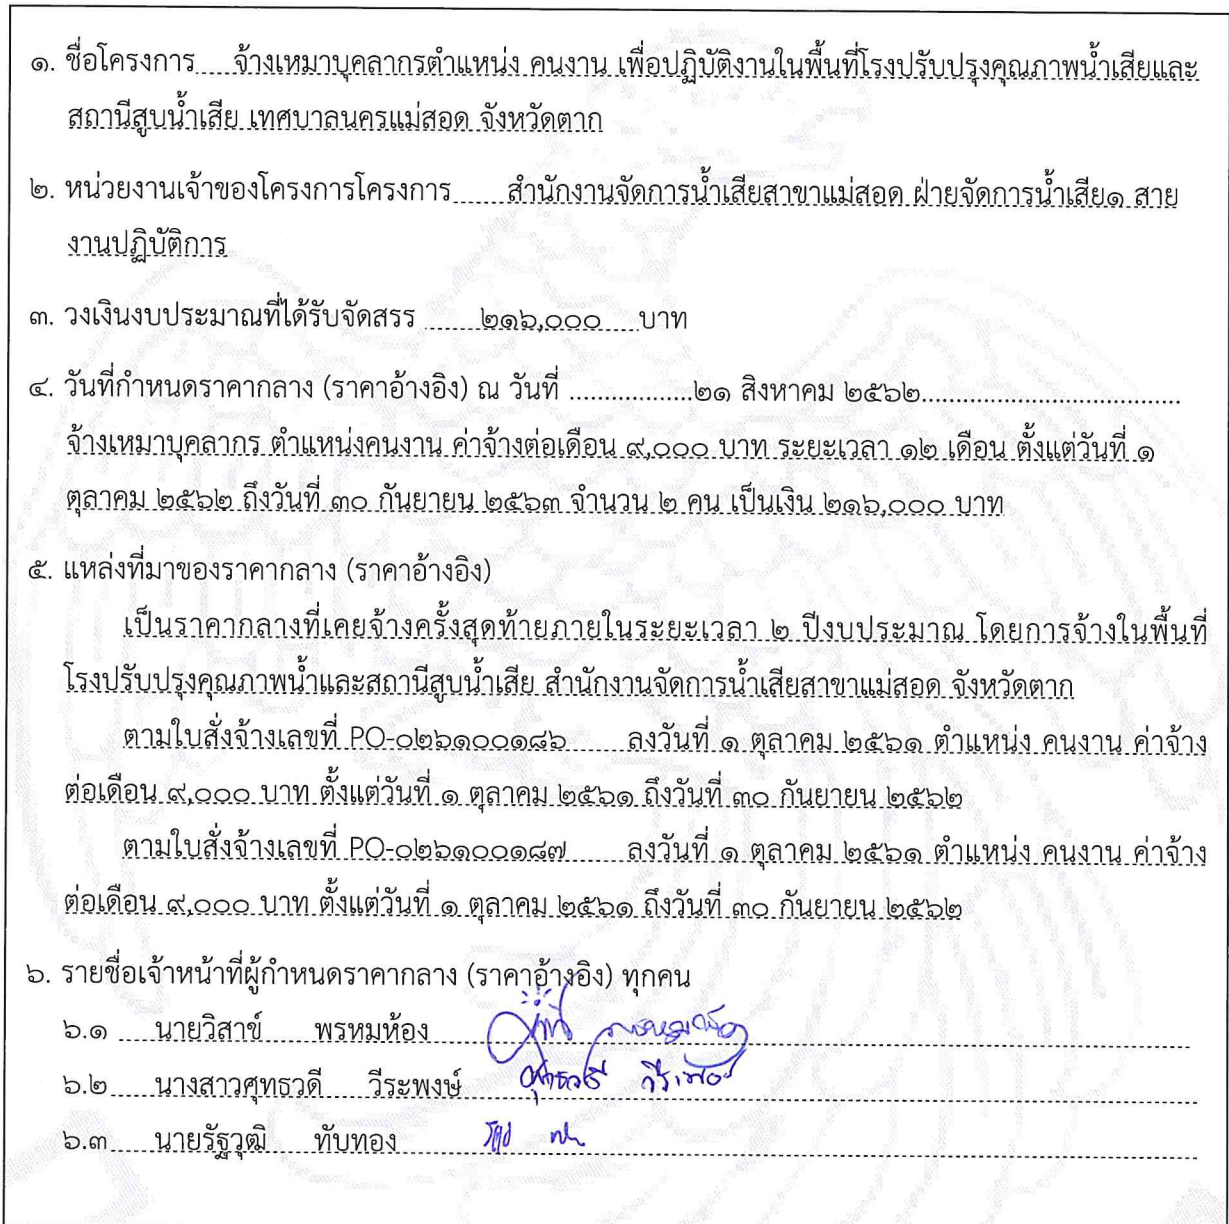 ๑. ชื่อโครงการ.....จ้างเหมาบุคลากรตำแหน่ง คนงาน เพื่อปฏิบัติงานในพื้นที่โรงปรับปรุงคุณภาพน้ำเสียและ
สถานีสูบน้ำเสีย เทศบาลนครแม่สอด จังหวัดตาก
๒. หน่วยงานเจ้าของโครงการโครงการ.......สำนักงานจัดการน้ำเสียสาขาแม่สอด ฝ่ายจัดการน้ำเสีย๑ สาย
งานปฏิบัติการ
๓. วงเงินงบประมาณที่ได้รับจัดสรร ........๒๑๖,๐๐๐.....บาท
๔. วันที่กำหนดราคากลาง (ราคาอ้างอิง) ณ วันที่ ..................๒๑ สิงหาคม ๒๕๖๒......................................
จ้างเหมาบุคลากร ตำแหน่งคนงาน ค่าจ้างต่อเดือน ๙,๐๐๐ บาท ระยะเวลา ๑๒ เดือน ตั้งแต่วันที่ ๑
ตุลาคม ๒๕๖๒ ถึงวันที่ ๓๐ กันยายน ๒๕๖๓ จำนวน ๒ คน เป็นเงิน ๒๑๖,๐๐๐ บาท
๕. แหล่งที่มาของราคากลาง (ราคาอ้างอิง)
เป็นราคากลางที่เคยจ้างครั้งสุดท้ายภายในระยะเวลา ๒ ปีงบประมาณ โดยการจ้างในพื้นที่
โรงปรับปรุงคุณภาพน้ำและสถานีสูบน้ำเสีย สำนักงานจัดการน้ำเสียสาขาแม่สอด จังหวัดตาก
ตามใบสั่งจ้างเลขที่ PO-๐๒๖๑๐๐๑๘๖ ลงวันที่ ๑ ตุลาคม ๒๕๖๑ ตำแหน่ง คนงาน ค่าจ้าง
ต่อเดือน ๙,๐๐๐ บาท ตั้งแต่วันที่ ๑ ตุลาคม ๒๕๖๑ ถึงวันที่ ๓๐ กันยายน ๒๕๖๒
ตามใบสั่งจ้างเลขที่ PO-๐๒๖๑๐๐๑๘๗ ลงวันที่ ๑ ตุลาคม ๒๕๖๑ ตำแหน่ง คนงาน ค่าจ้าง
ต่อเดือน ๙,๐๐๐ บาท ตั้งแต่วันที่ ๑ ตุลาคม ๒๕๖๑ ถึงวันที่ ๓๐ กันยายน ๒๕๖๒
๖. รายชื่อเจ้าหน้าที่ผู้กำหนดราคากลาง (ราคาอ้างอิง) ทุกคน
๖.๑ นายวิสาข์ พรหมห้อง
๖.๒ นางสาวศุทธวดี วีระพงษ์
๖.๓ นายรัฐวุฒิ ทับทอง